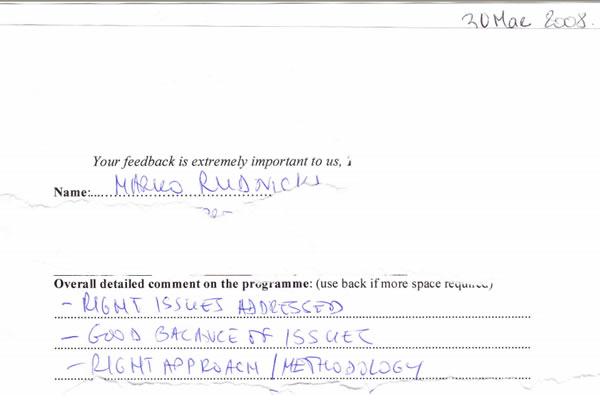 30 Mar 2008.
Your feedback is extremely important to us,
Name:...... MARKO RUDNICKI
Overall detailed comment on the programme: (use back if more space required)
- RIGHT ISSUES ADDRESSED
- GOOD BALANCE OF ISSUES
- RIGHT APPROACH / METHODOLOGY